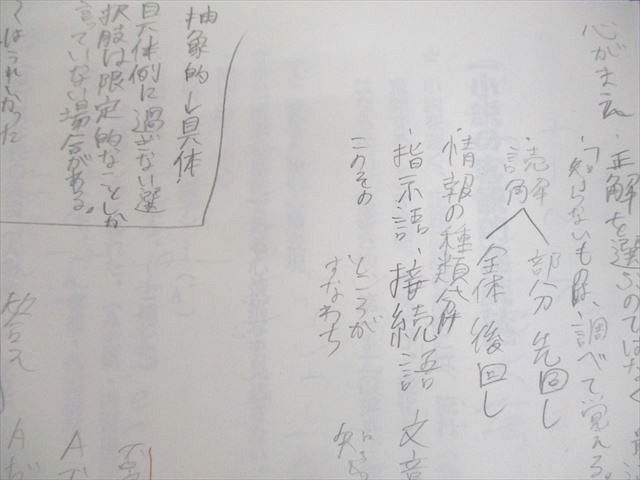 心がまえ・正解を選ぶのではなく
・知らないものは、調べて覚える。
・読解 部分 先回し
全体 後回し
・情報の種類分
・指示語・接続語 文章
このその ところが
すなわち
抽象的↓具体
具体例に過ぎない選
択肢は限定的なことしか
言っていない場合がある。
答え
A
A